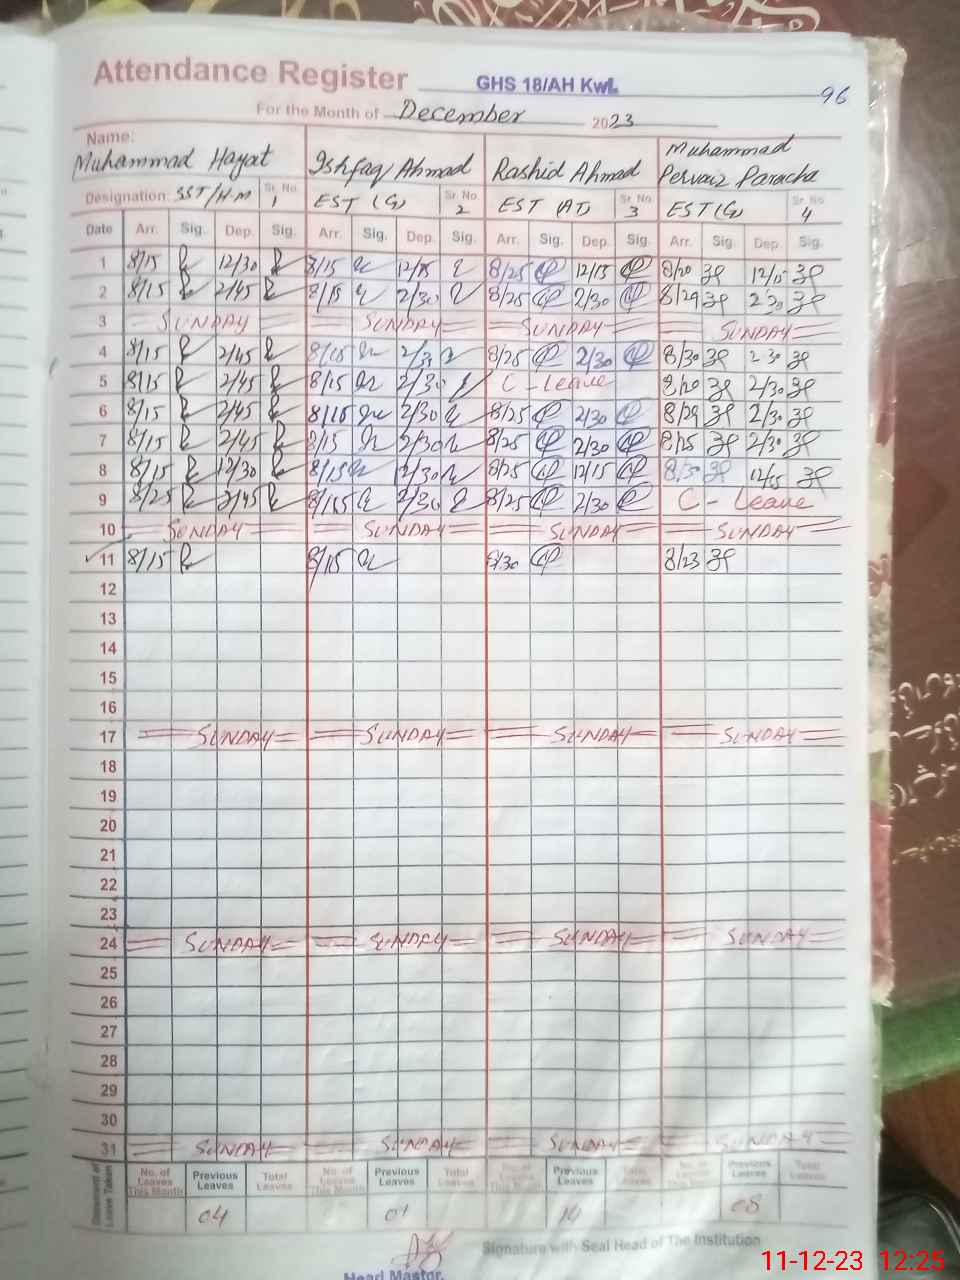 Attendance Register GHS 18/AH KwL 96
For the Month of December 2023
Name:
Muhammad Hayat Ishfaq Ahmad Rashid Ahmad Muhammad Pervaiz Paracha
Designation: SST/H.M Sr. No. 1 EST (G) Sr. No. 2 EST (AT) Sr. No. 3 EST (G) Sr. No. 4
Date Arr. Sig. Dep. Sig. Arr. Sig. Dep. Sig. Arr. Sig. Dep. Sig. Arr. Sig. Dep. Sig.
1 8/15 12/30 8/15 12/15 8/25 12/15 8/20 12/15
2 8/15 2/45 8/15 2/30 8/25 2/30 8/29 2 30
3 SUNDAY SUNDAY SUNDAY SUNDAY
4 8/15 2/45 8/15 8/25 2/30 8/30 2 30
5 8/15 2/45 8/15 2/30 C - Leave 8/20 2/30
6 8/15 2/45 8/15 2/30 8/25 2/30 8/29 2/30
7 8/15 2/45 8/15 2/30 8/25 2/30 8/25 2/30
8 8/15 12/30 8/15 12/30 8/25 12/15 8/30 12/15
9 8/25 2/45 2/30 8/25 2/30 C - Leave
10 SUNDAY SUNDAY SUNDAY SUNDAY
11 8/15 8/15 8/30 8/23
12
13
14
15
16
17 SUNDAY SUNDAY SUNDAY SUNDAY
18
19
20
21
22
23
24 SUNDAY SUNDAY SUNDAY SUNDAY
25
26
27
28
29
30
31 SUNDAY SUNDAY SUNDAY SUNDAY
Leave Taken No. of Leaves This Month Previous Leaves Total Leaves No. of Leaves This Month Previous Leaves Total Leaves No. of Leaves This Month Previous Leaves Total Leaves No. of Leaves Previous Leaves Total Leaves
04 01 14 08
Signature with Seal Head of The Institution
Head Master,
11-12-23 12:25